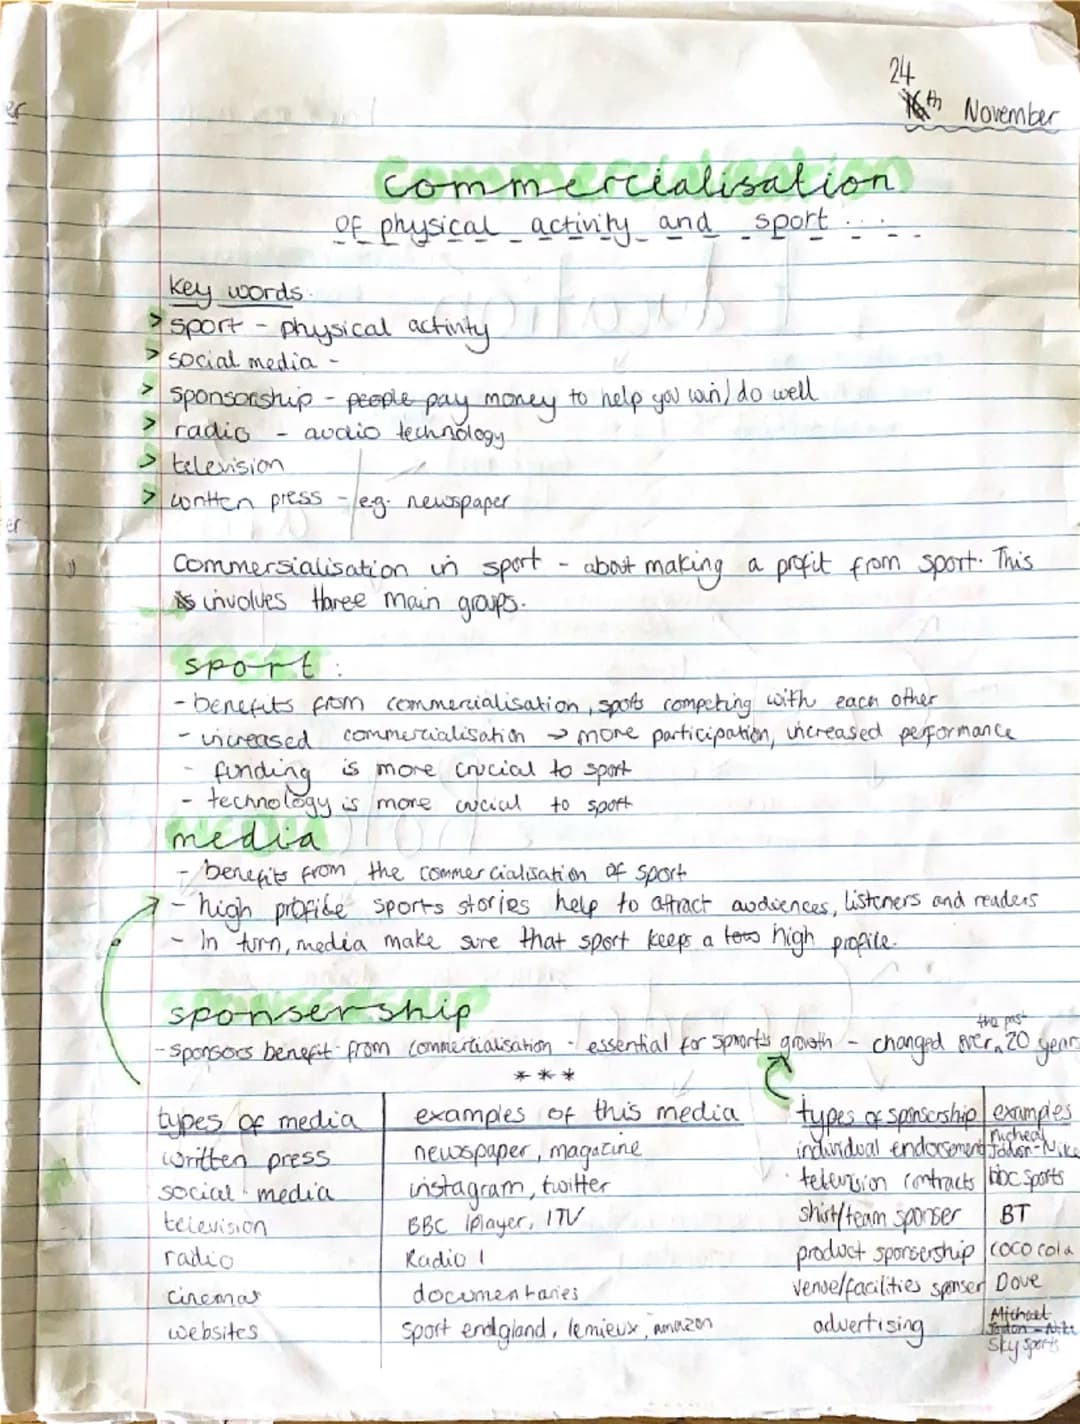 24
th November
commercialisation
of physical activity and sport . . . .
key words.
> sport - physical activity
> social media -
> sponsorship - people pay money to help you win/do well
> radio - audio technology
> television
> written press - e.g. newspaper
Commersialisation in sport - about making a profit from sport. This
involves three main groups.
sport:
- benefits from commercialisation, sports competing with each other
- increased commercialisation → more participation, increased performance
- funding is more crucial to sport
- technology is more crucial to sport
media
- benefits from the commercialisation of sport
- high profile sports stories help to attract audiences, listeners and readers
- In turn, media make sure that sport keeps a high profile.
sponsership
- sponsors benefit from commercialisation - essential for sports growth - changed over the past 20 years
* * *
types of media | examples of this media
written press | newspaper, magazine
social media | instagram, twitter
television | BBC iplayer, ITV
radio | Radio 1
cinemas | documentaries
websites | sport endgland, lemieux, amazon
types of sponsership | examples
individual endorsement | Micheal Jordon-Nike
television contracts | bbc sports
shirt/team sponser | BT
product sponsership | coco cola
venue/facilities sponser | Dove
advertising | Michael Jordon - Nike
Sky sports